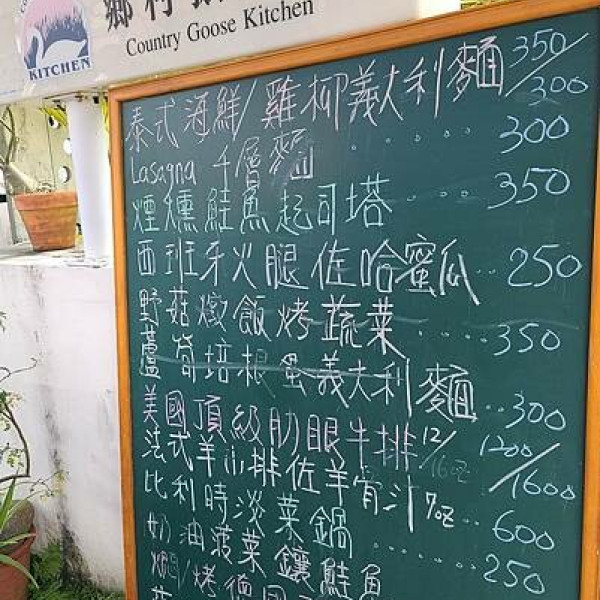 鄉村
Country Goose Kitchen
KITCHEN
泰式海鮮/雞柳義大利麵 350/300
Lasagna 千層麵 .... 300
煙燻鮭魚起司塔 .... 350
西班牙火腿佐哈蜜瓜.. 250
野菇燉飯烤蔬菜 .... 350
蘆筍培根蛋義大利麵.. 300
美國頂級肋眼牛排 12/16oz 1200/1600
法式羊小排佐羊骨汁 7oz ... 600
比利時淡菜鍋 ..... 250
奶油菠菜鑲鮭魚
/烤德國